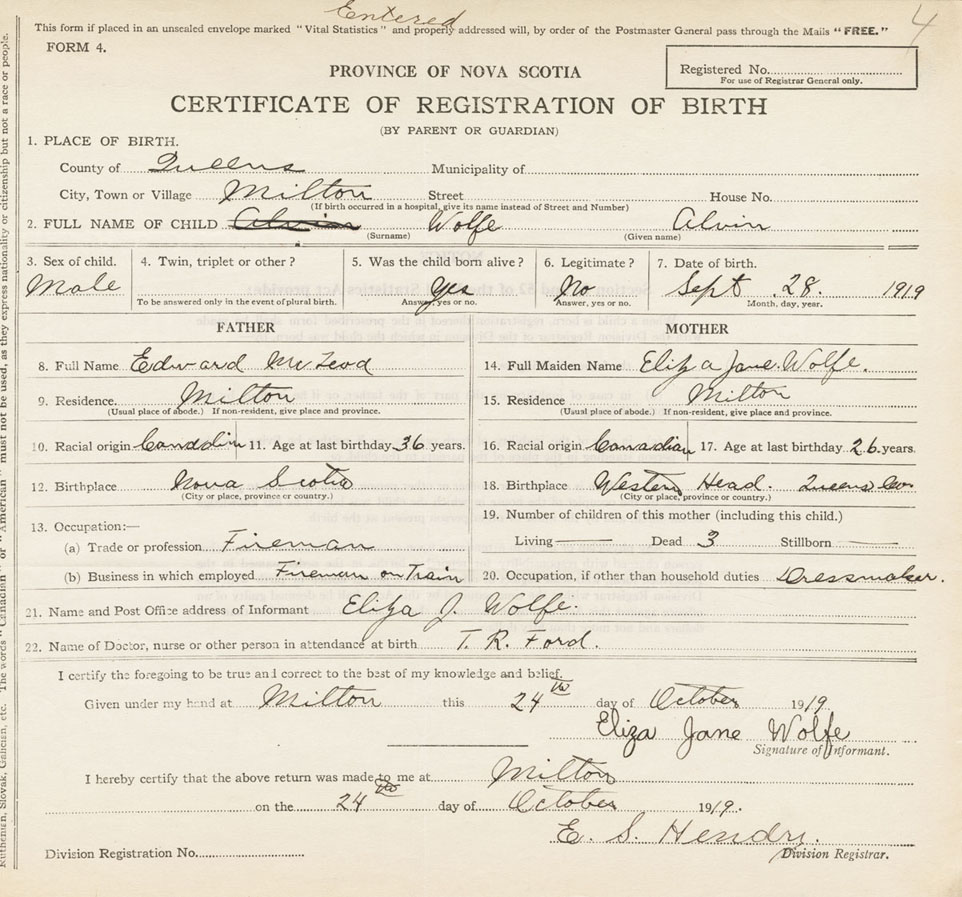 Entered
4
This form if placed in an unsealed envelope marked "Vital Statistics" and properly addressed will, by order of the Postmaster General pass through the Mails "FREE."
FORM 4.
Registered No.
For use of Registrar General only.
PROVINCE OF NOVA SCOTIA
CERTIFICATE OF REGISTRATION OF BIRTH
(BY PARENT OR GUARDIAN)
1. PLACE OF BIRTH.
County of Queens Municipality of
City, Town or Village Milton Street House No.
(If birth occurred in a hospital, give its name instead of Street and Number)
2. FULL NAME OF CHILD Alvin Wolfe Alvin
(Surname) (Given name)
3. Sex of child. 4. Twin, triplet or other? 5. Was the child born alive? 6. Legitimate? 7. Date of birth.
Male Yes No Sept 28. 1919
To be answered only in the event of plural birth. Answer, yes or no. Answer, yes or no. Month, day, year.
FATHER MOTHER
8. Full Name Edward McLeod 14. Full Maiden Name Eliza Jane Wolfe.
9. Residence. Milton 15. Residence Milton
(Usual place of abode.) If non-resident, give place and province. (Usual place of abode.) If non-resident, give place and province.
10. Racial origin Canadian 11. Age at last birthday 36 years. 16. Racial origin Canadian 17. Age at last birthday 26 years.
12. Birthplace Nova Scotia 18. Birthplace Western Head. Queens Co
(City or place, province or country.) (City or place, province or country.)
13. Occupation:— 19. Number of children of this mother (including this child.)
(a) Trade or profession Fireman Living — Dead 3 Stillborn —
(b) Business in which employed Fireman on Train 20. Occupation, if other than household duties Dressmaker.
21. Name and Post Office address of Informant Eliza J. Wolfe.
22. Name of Doctor, nurse or other person in attendance at birth T. R. Ford.
I certify the foregoing to be true and correct to the best of my knowledge and belief.
Given under my hand at Milton this 24th day of October 1919.
Eliza Jane Wolfe
Signature of Informant.
I hereby certify that the above return was made to me at Milton
on the 24th day of October 1919.
E. S. Hendry.
Division Registration No. Division Registrar.
Ruthenian, Slovak, Galician, etc. The words "Canadian" or "American" must not be used, as they express nationality or citizenship but not a race or people.